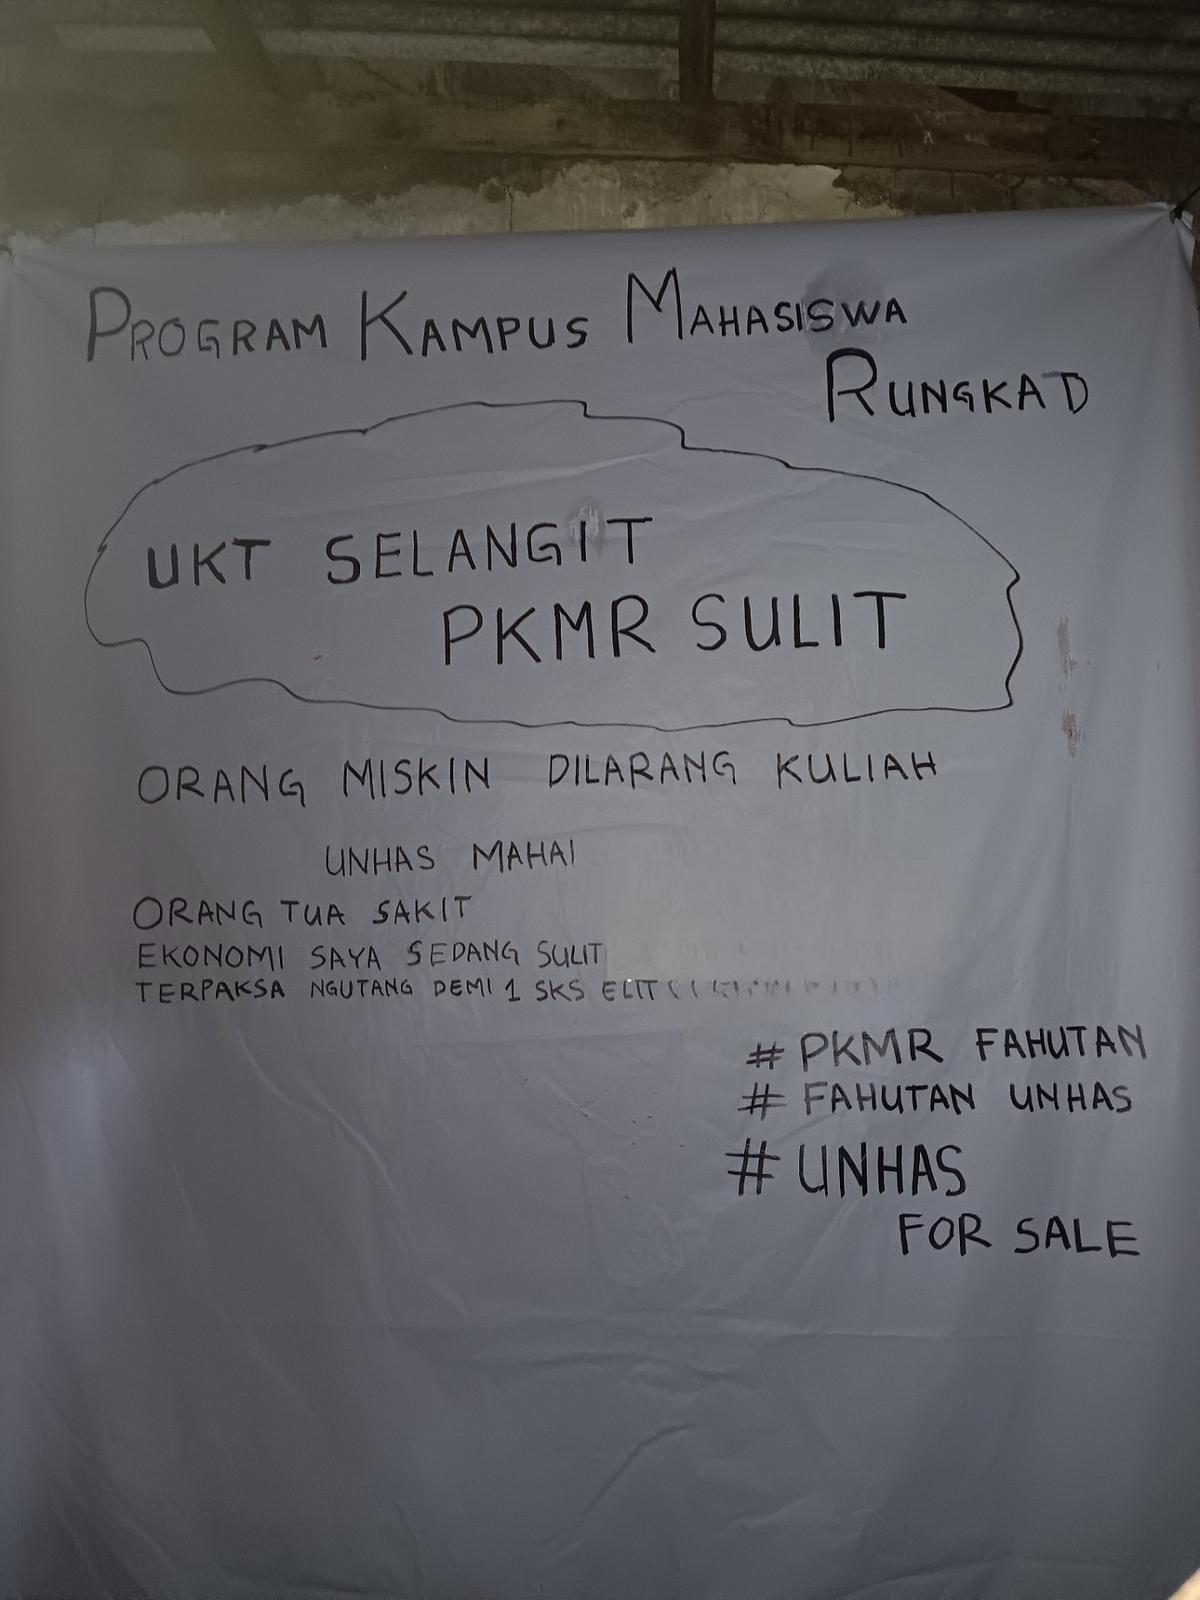 PROGRAM KAMPUS MAHASISWA
RUNGKAD
UKT SELANGIT
PKMR SULIT
ORANG MISKIN DILARANG KULIAH
UNHAS MAHAI
ORANG TUA SAKIT
EKONOMI SAYA SEDANG SULIT
TERPAKSA NGUTANG DEMI 1 SKS ELIT
# PKMR FAHUTAN
# FAHUTAN UNHAS
# UNHAS
FOR SALE